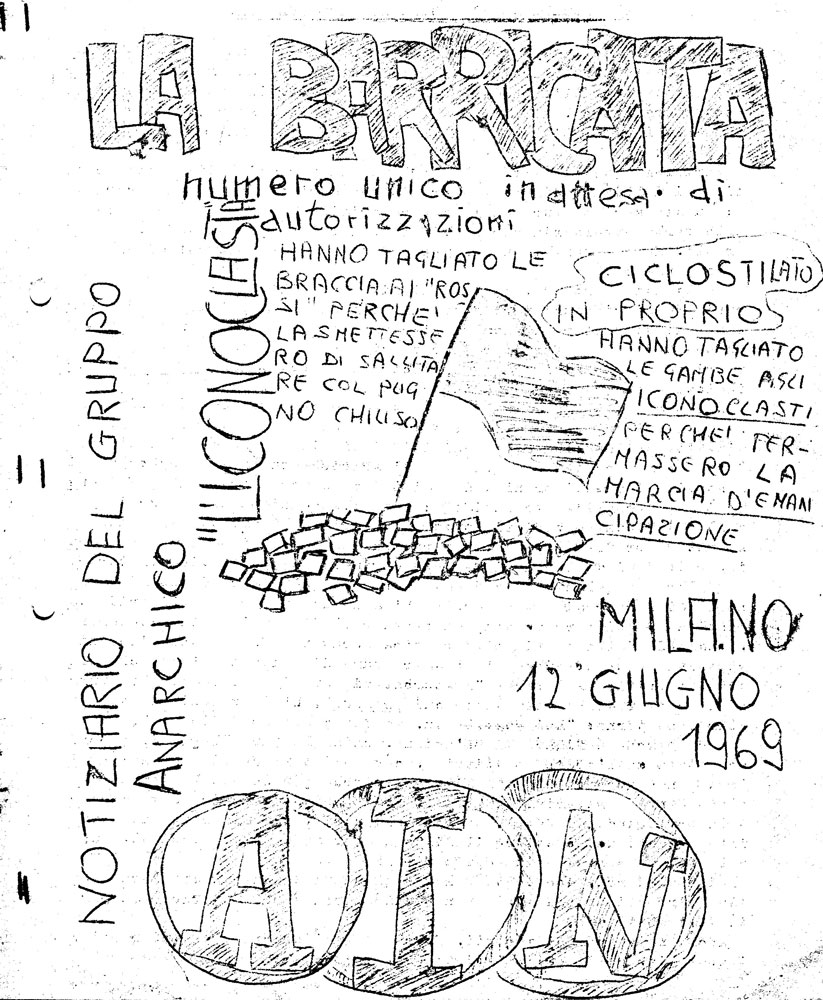 LA BARRICATA
numero unico in attesa di
autorizzazioni
HANNO TAGLIATO LE
BRACCIA AI "ROS
SI" PERCHE'
LA SMETTESSE
RO DI SALUTA
RE COL PUG
NO CHIUSO
CICLOSTILATO
IN PROPRIO
HANNO TAGLIATO
LE GAMBE AGLI
ICONOCLASTI
PERCHE' FER-
MASSERO LA
MARCIA D'EMAN
CIPAZIONE
NOTIZIARIO DEL GRUPPO
ANARCHICO
"L'ICONOCLASTA"
MILANO
12 GIUGNO
1969
A I N